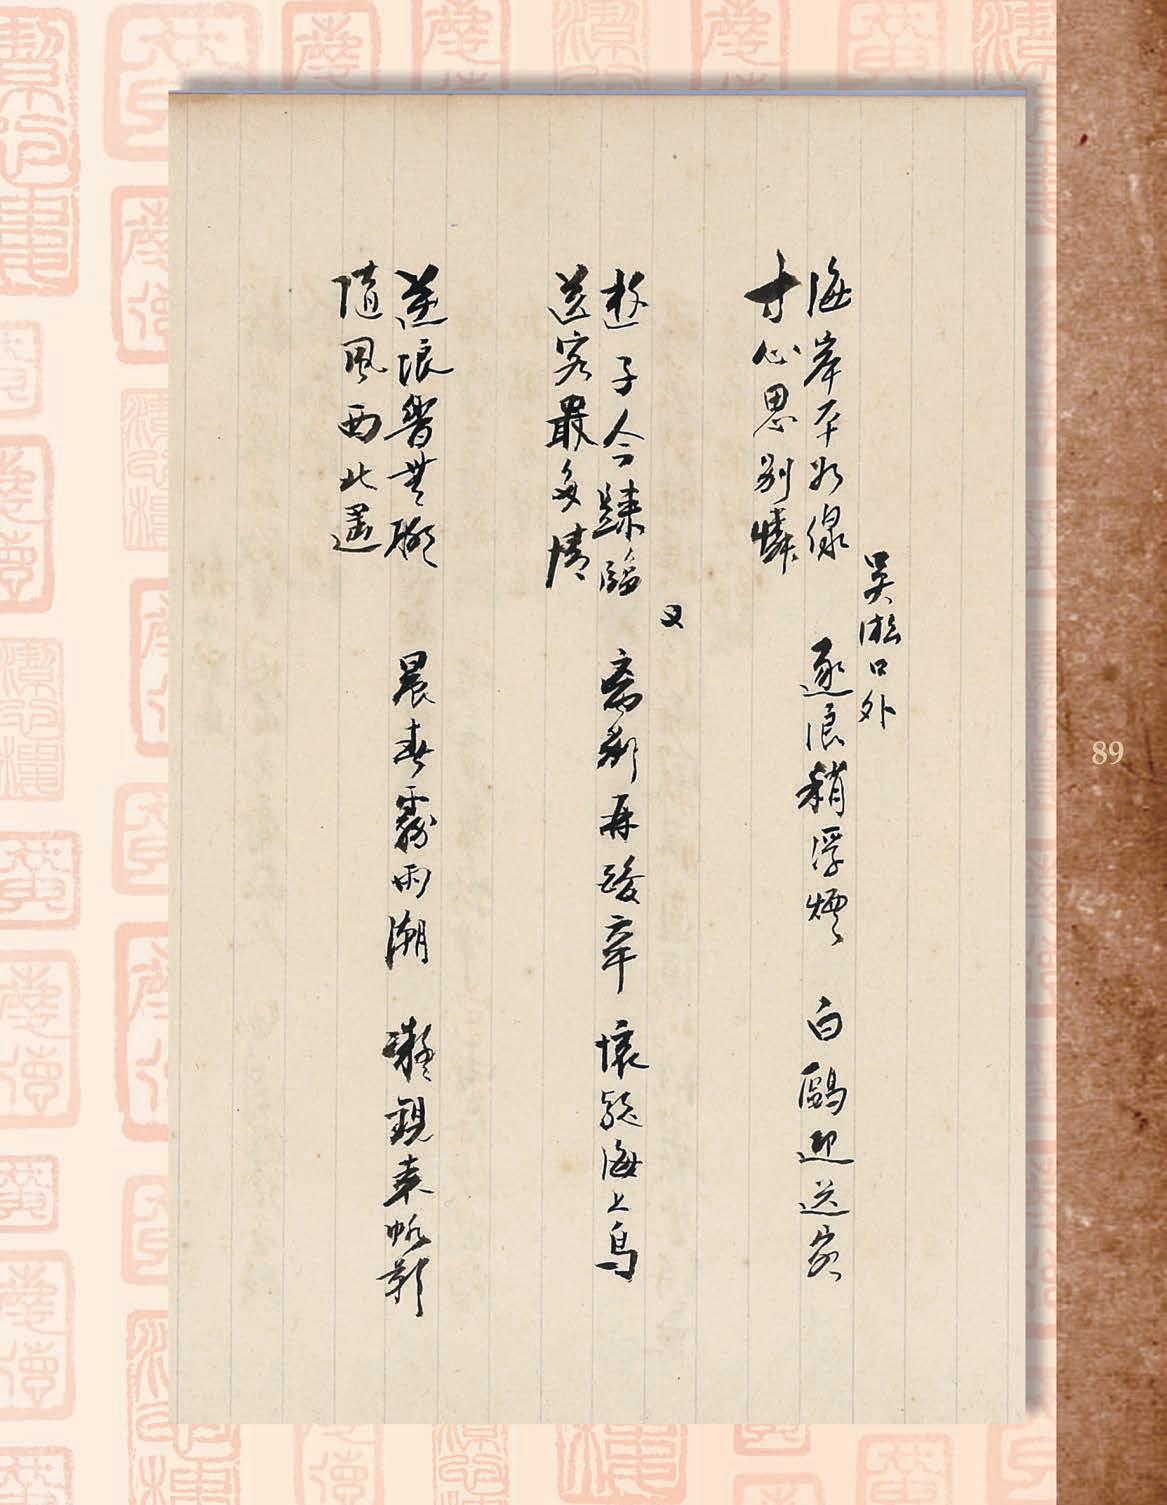 吳淞口外
海岸平如線 逐浪稍浮煙 白鷗迎送客
寸心思別憐
又
遊子今歸 再酸辛 懷疑海上鳥
送客最多情
逆浪響無聊 晨春霧雨潮 凝視來帆影
隨風西北遙
89